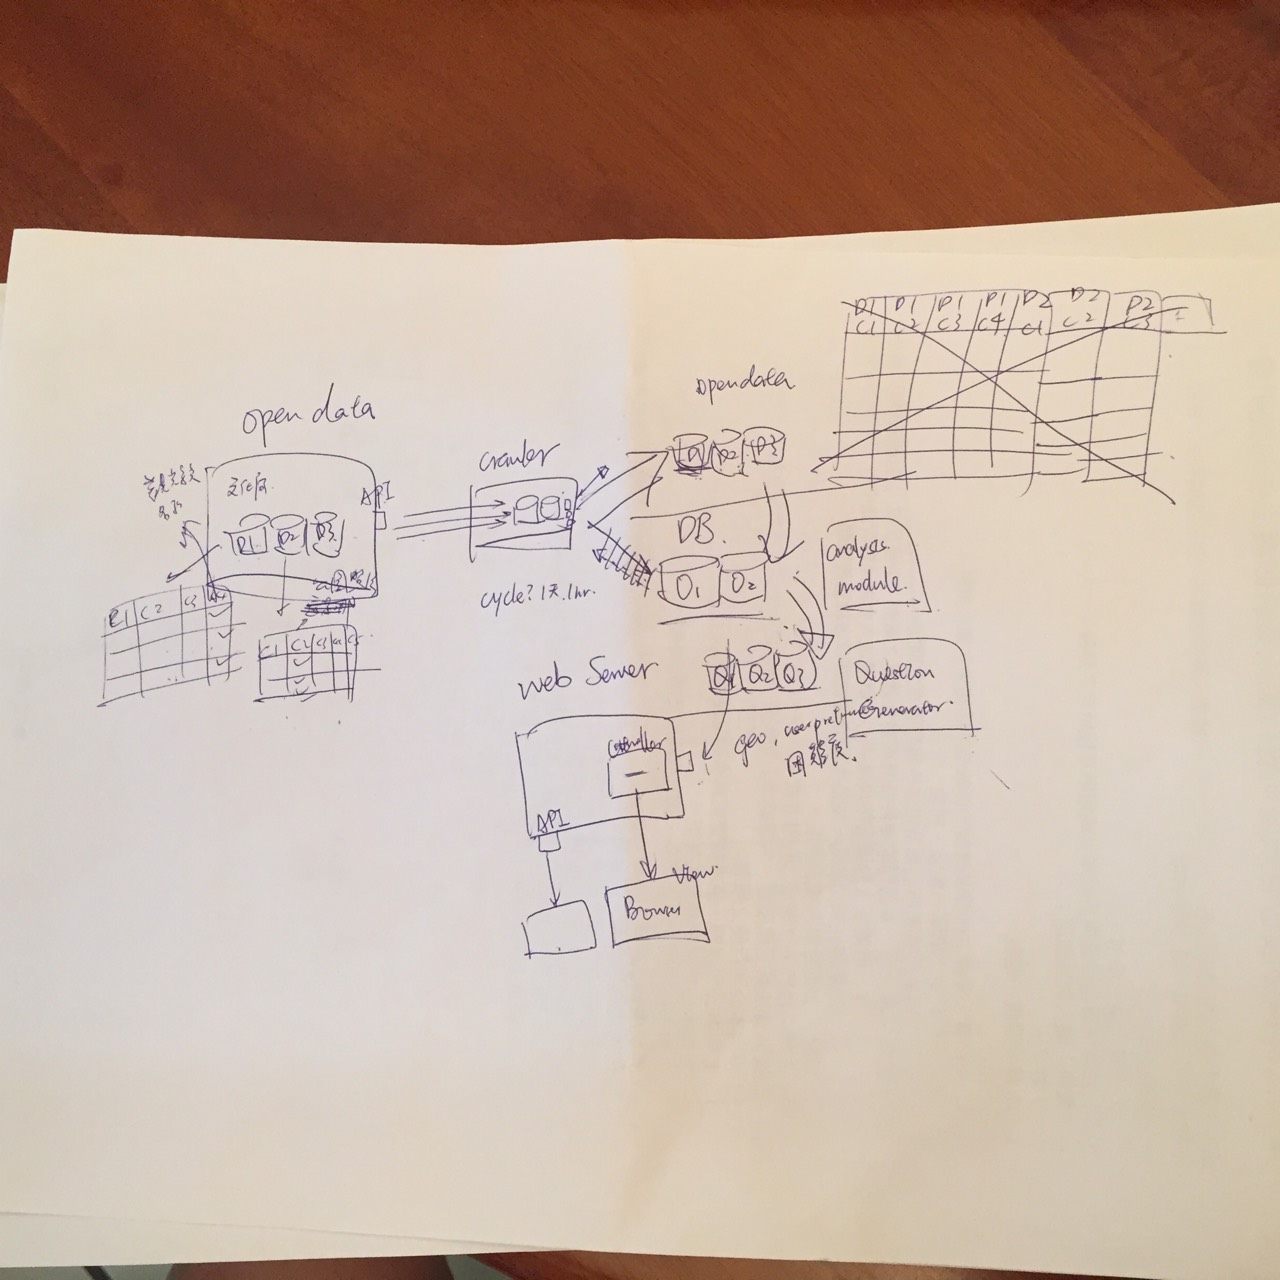 open data
API
D1 D2 D3
C1 C2 C3
C1 C2 C3 C4 C5
crawler
cycle? 1天. 1hr.
opendata
D1 D2 D3
D1 D1 D1 D1 D2 D2 D2
C1 C2 C3 C4 C1 C2 C3
DB.
O1 O2
analysis
module.
Q1 Q2 Q3
Question
Generator.
geo,
困難度.
Web Server
Controller
API
View
Browser